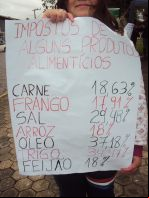 IMPOSTOS DE
ALGUNS PRODUTO
ALIMENTÍCIOS
CARNE 18,63%
FRANGO 17,91%
SAL 29,48%
ARROZ 18%
OLEO 37,18%
TRIGO
FEIJÃO 18%